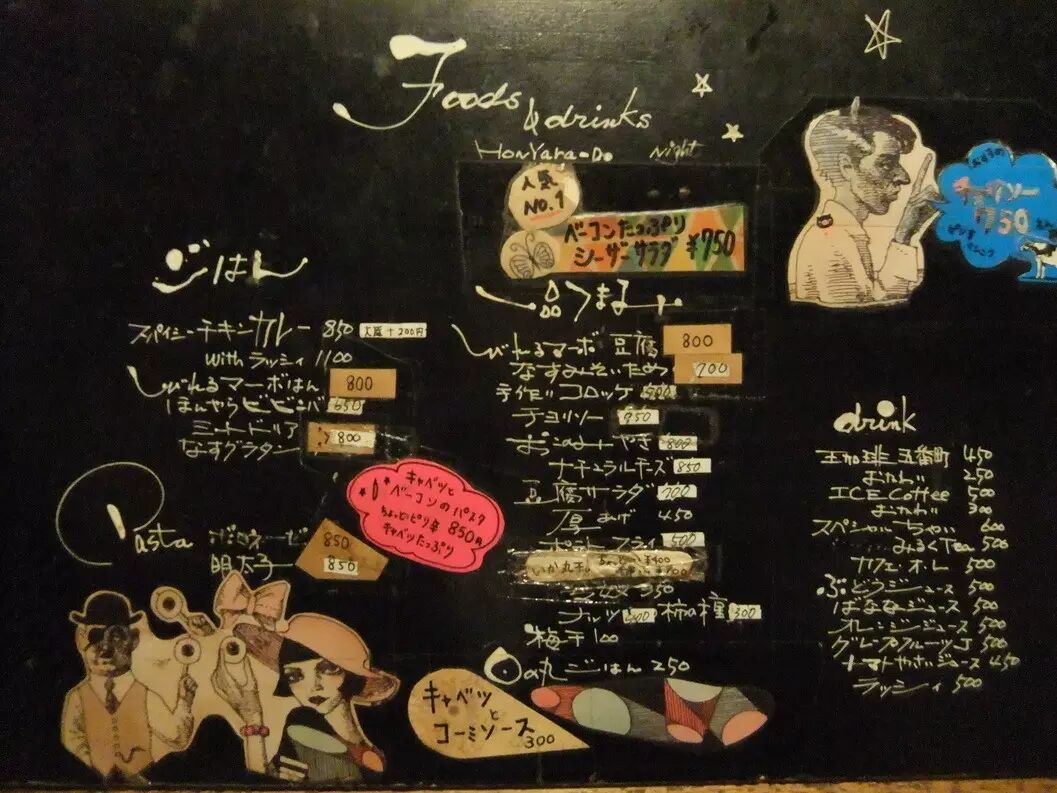 Foods
& drinks
HonYara-Do Night
人気
NO.1
ベーコンたっぷり
シーザーサラダ ¥750
ごはん
スパイシーチキンカレー 850 大盛+200円
with ラッシィ 1100
しびれるマーボはん 800
ほんやらビビンバ 650
ミートドリア
なすグラタン 800
Pasta
ボロネーゼ 850
明太子 850
キャベツと
ベーコンのパスタ
ちょっとピリ辛 850円
キャベツたっぷり
一品つまみ
しびれるマーボ豆腐 800
なすみそいため 700
手作りコロッケ
チョリソー 950
おこのみやき 800
ナチュラルチーズ 850
豆腐サラダ 700
厚あげ 450
ポテトフライ 500
いか丸干し
350
ナッツ 柿の種 300
梅干 100
の丸ごはん 250
キャベツ
と
コーミソース
300
おすすめ
チョリソー
¥750
drink
珈琲 五番町 450
おかわり 250
ICE Coffee 500
おかわり 300
スペシャルちゃい 600
みるくTea 500
カフェ・オ・レ 500
ぶどうジュース 500
ばななジュース 500
オレンジジュース 500
グレープフルーツJ 500
トマトやさいジュース 450
ラッシィ 500